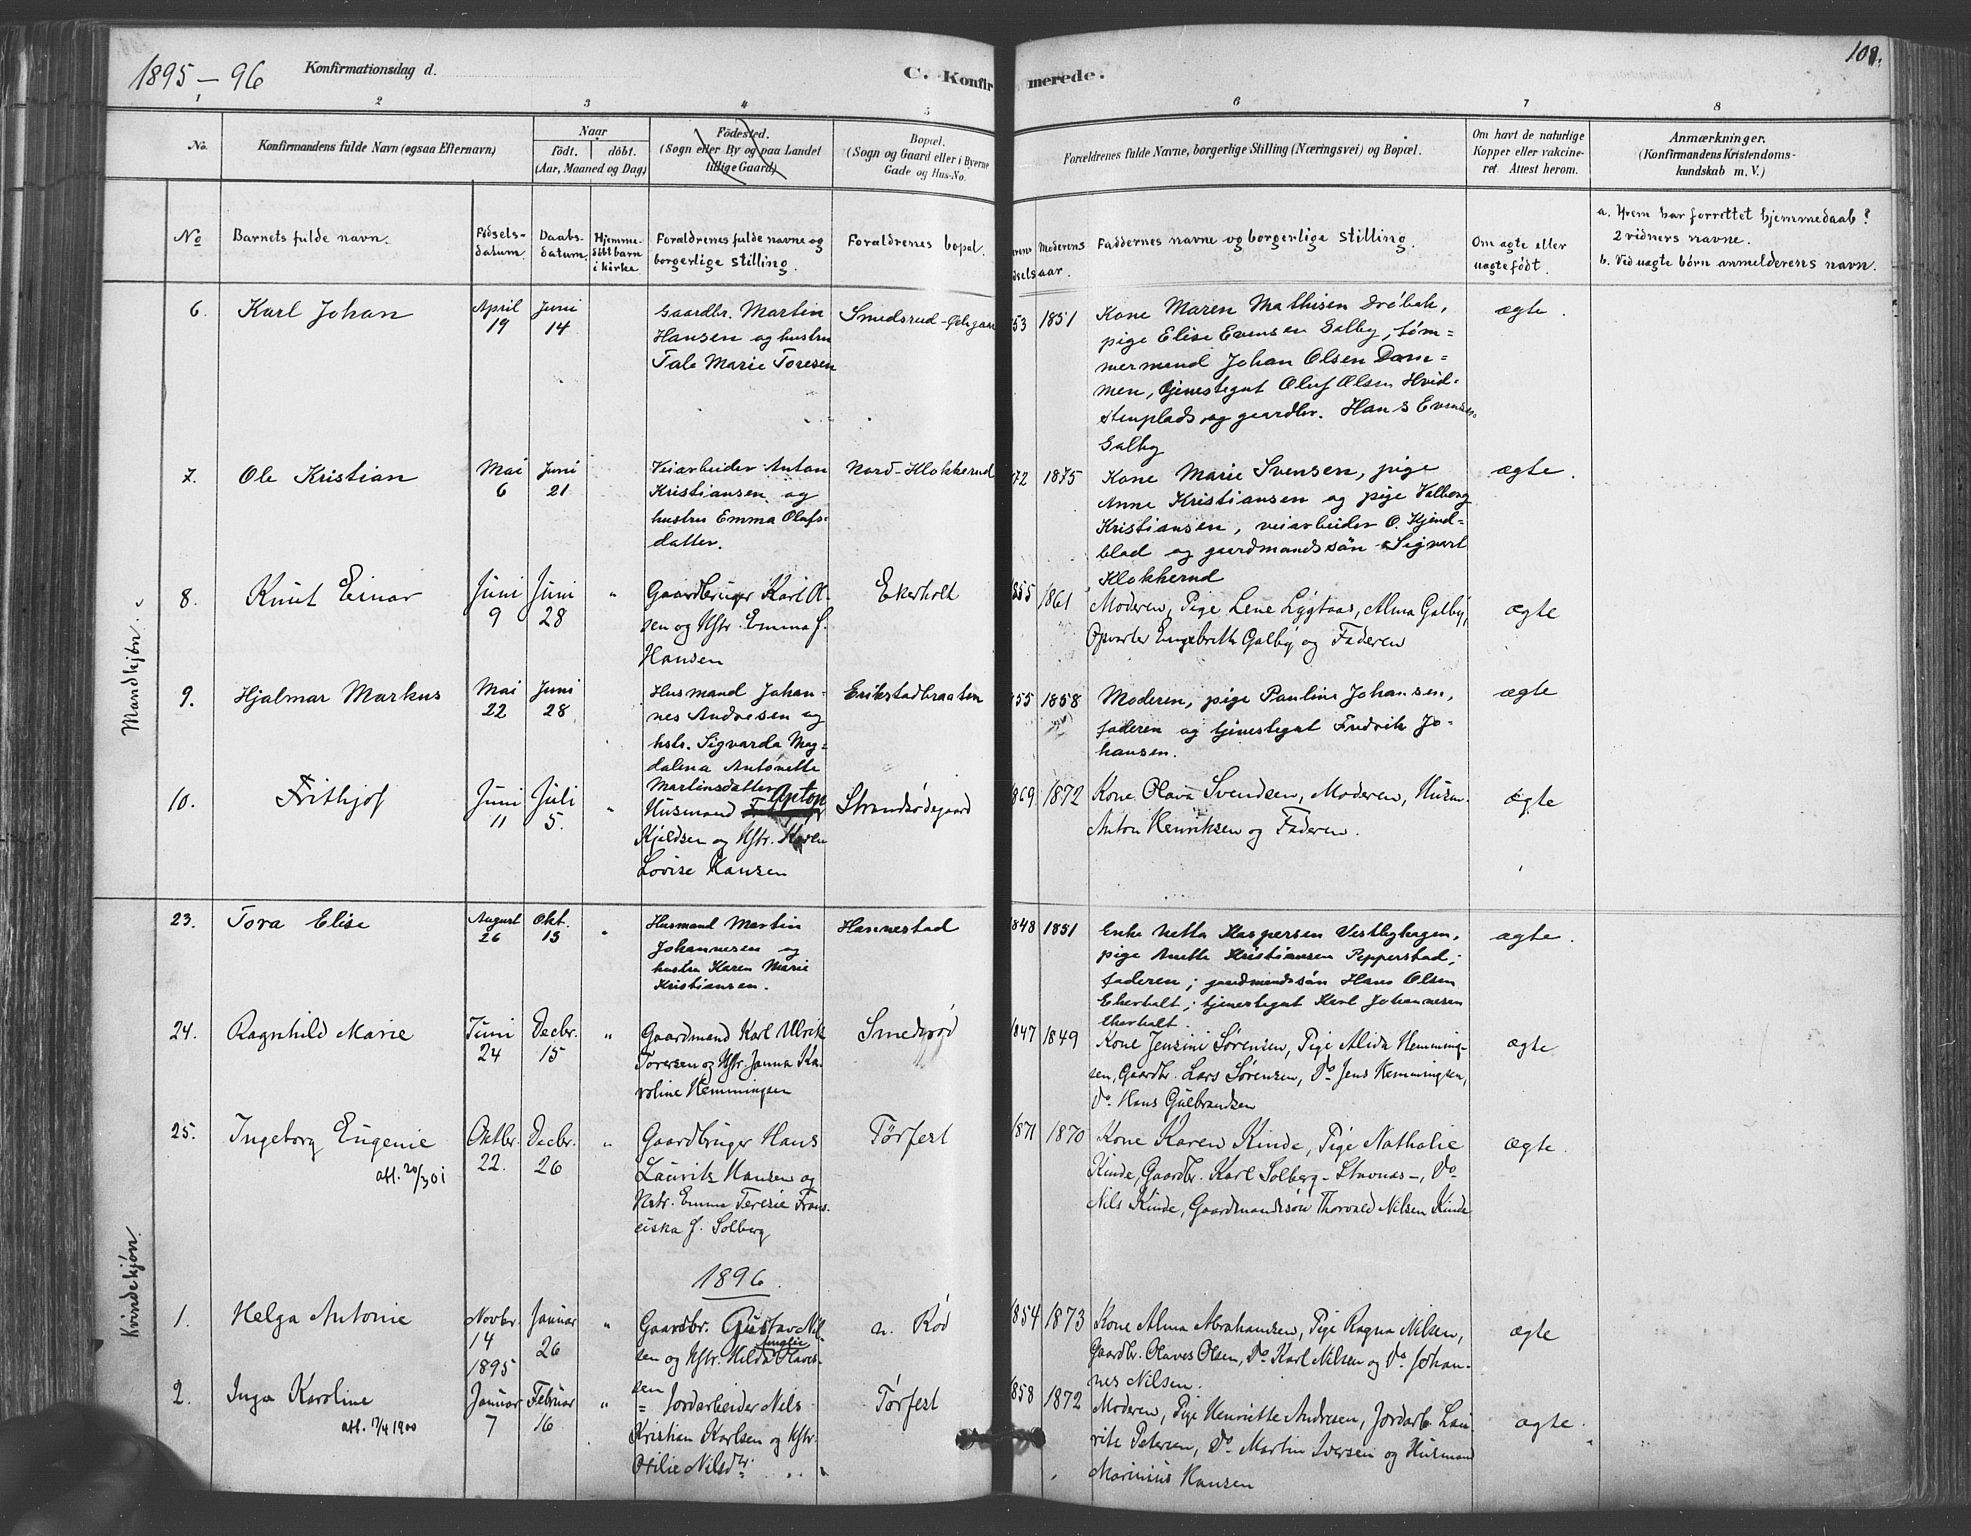 1895 – 96
Konfirmationsdag d.
C. Konfirmerede.
1 2 3 4 5 6 7 8
No.
Konfirmandens fulde Navn (ogsaa Efternavn)
Naar
født. døbt.
(Aar, Maaned og Dag)
Fødested.
(Sogn eller By og paa Landet
tillige Gaard)
Bopæl.
(Sogn og Gaard eller i Byerne
Gade og Hus-No.
Forældrenes fulde Navne, borgerlige Stilling (Næringsvei) og Bopæl.
Om havt de naturlige
Kopper eller vakcine-
ret. Attest herom.
Anmærkninger.
(Konfirmandens Kristendoms-
kundskab m. V.)
No
Barnets fulde navn.
Fødsels-
datum.
Daabs-
datum.
Hjemme-
døbt barn
i kirke
Forældrenes fulde navne og
borgerlige stilling.
Forældrenes bopæl.
Moderens
aar.
Faddernes navne og borgerlige stilling.
Om ægte eller
uægte født.
a. Hvem har forrettet hjemmedaab?
2 vidners navne.
b. Ved uægte børn anmelderens navn.
Mandkjøn.
6.
Karl Johan
April
19
Juni
14
Gaardbr. Martin
Hansen og hustru
Tale Marie Toresen
Smedsrud
53
1851
Kone Maren Mathisen Drøbak,
pige Elise Evensen Galby, tøm-
mermand Johan Olsen Dam-
men, tjenestegut Oluf Olsen Hvid-
stenplads og gaardbr. Hans Evensen
Galby
ægte.
7.
Ole Kristian
Mai
6
Juni
21
Veiarbeider Anton
Kristiansen og
hustru Emma Olufs-
datter.
Nord-Klokkerud
72
1875
Kone Marie Svensen, pige
Anne Kristiansen og pige Valborg
Kristiansen, veiarbeider O. Kjend-
blad og gaardmandssøn Sigvart
Klokkerud
ægte.
8.
Knut Einar
Juni
9
Juni
28
"
Gaardbruger Karl Ol-
sen og Hstr. Emma J.
Hansen
Ekerholt
855
1861
Moderen, Pige Lene Lygtaas, Alma Galby,
Engebreth Galby og Faderen
ægte
9.
Hjalmar Markus
Mai
22
Juni
28
Husmand Johan-
nes Andresen og
hstr. Sigvarda Mag-
dalena Antonette
Martinsdatter
Erikstadbraaten
55
1858
Moderen, pige Pauline Johansen,
faderen og tjenestegut Fredrik Jo-
hansen.
ægte
10.
Frithjof
Juni
11
Juli
5.
"
Husmand Anton
Kjeldsen og Hstr. Karen
Lovise Hansen
Strandsødegaard
869
1872
Kone Olava Svendsen, Moderen, Husm.
Anton Henriksen og Faderen.
ægte
Kvindekjøn.
23.
Tora Elise
August
26
Okt.
13
"
Husmand Martin
Johannesen og
hustru Karen Marie
Kristiansen.
Hannestad
848
1851
Enke Netta Kaspersen Vestbyhagen,
pige Anette Kristiansen Pepperstad;
faderen; gaardmandssøn Hans Olsen
Ekerholt; tjenestegut Karl Johannesen
Ekerholt.
ægte.
24.
Ragnhild Marie
Juni
24
Decbr.
15
"
Gaardmand Karl Ulrik
Toresen og Hstr. Janna Ka-
roline Hemmingsen
Smedsrød
847
1849
Kone Jensine Sørensen, Pige Alida Hemming-
sen, Gaardbr. Lars Sørensen, Do Jens Hemmingsen,
Do Hans Gulbrandsen
ægte
25.
Ingeborg Eugenie
att. 20/3 01
Oktbr.
22.
Decbr.
26
"
Gaardbruger Hans
Lauritz Hansen og
Hstr. Emma Teresie Fran-
ciska f. Solberg
Tørfest
871
1870
Kone Karen Kinde, Pige Nathalie
Kinde, Gaardbr. Karl Solberg – Stavnæs –, Do
Nils Kinde, Gaardmandssøn Thorvald Nilsen Kinde
ægte.
1896.
1.
Helga Antonie
Novbr.
14
1895
Januar
26
"
Gaardbr. Gustav Nil-
sen og Hstr. Hilda Amalie Olaves-
sen
n. Rød
854
1873
Kone Alma Abrahamsen, Pige Ragna Nilsen,
Gaardbr. Olaves Olsen, Do Karl Nilsen og Do Johan-
nes Nilsen.
ægte
2.
Inga Karoline
att. 17/4 1900
Januar
7
Februar
16
"
Jordarbeider Nils
Kristian Karlsen og Hstr.
Otilie Nilsdtr.
Tørfest
858
1872
Moderen, Pige Henriette Andresen, Jordarb. Lau-
ritz Petersen, Do Martin Iversen og Husmand
Marinius Hansen
ægte.